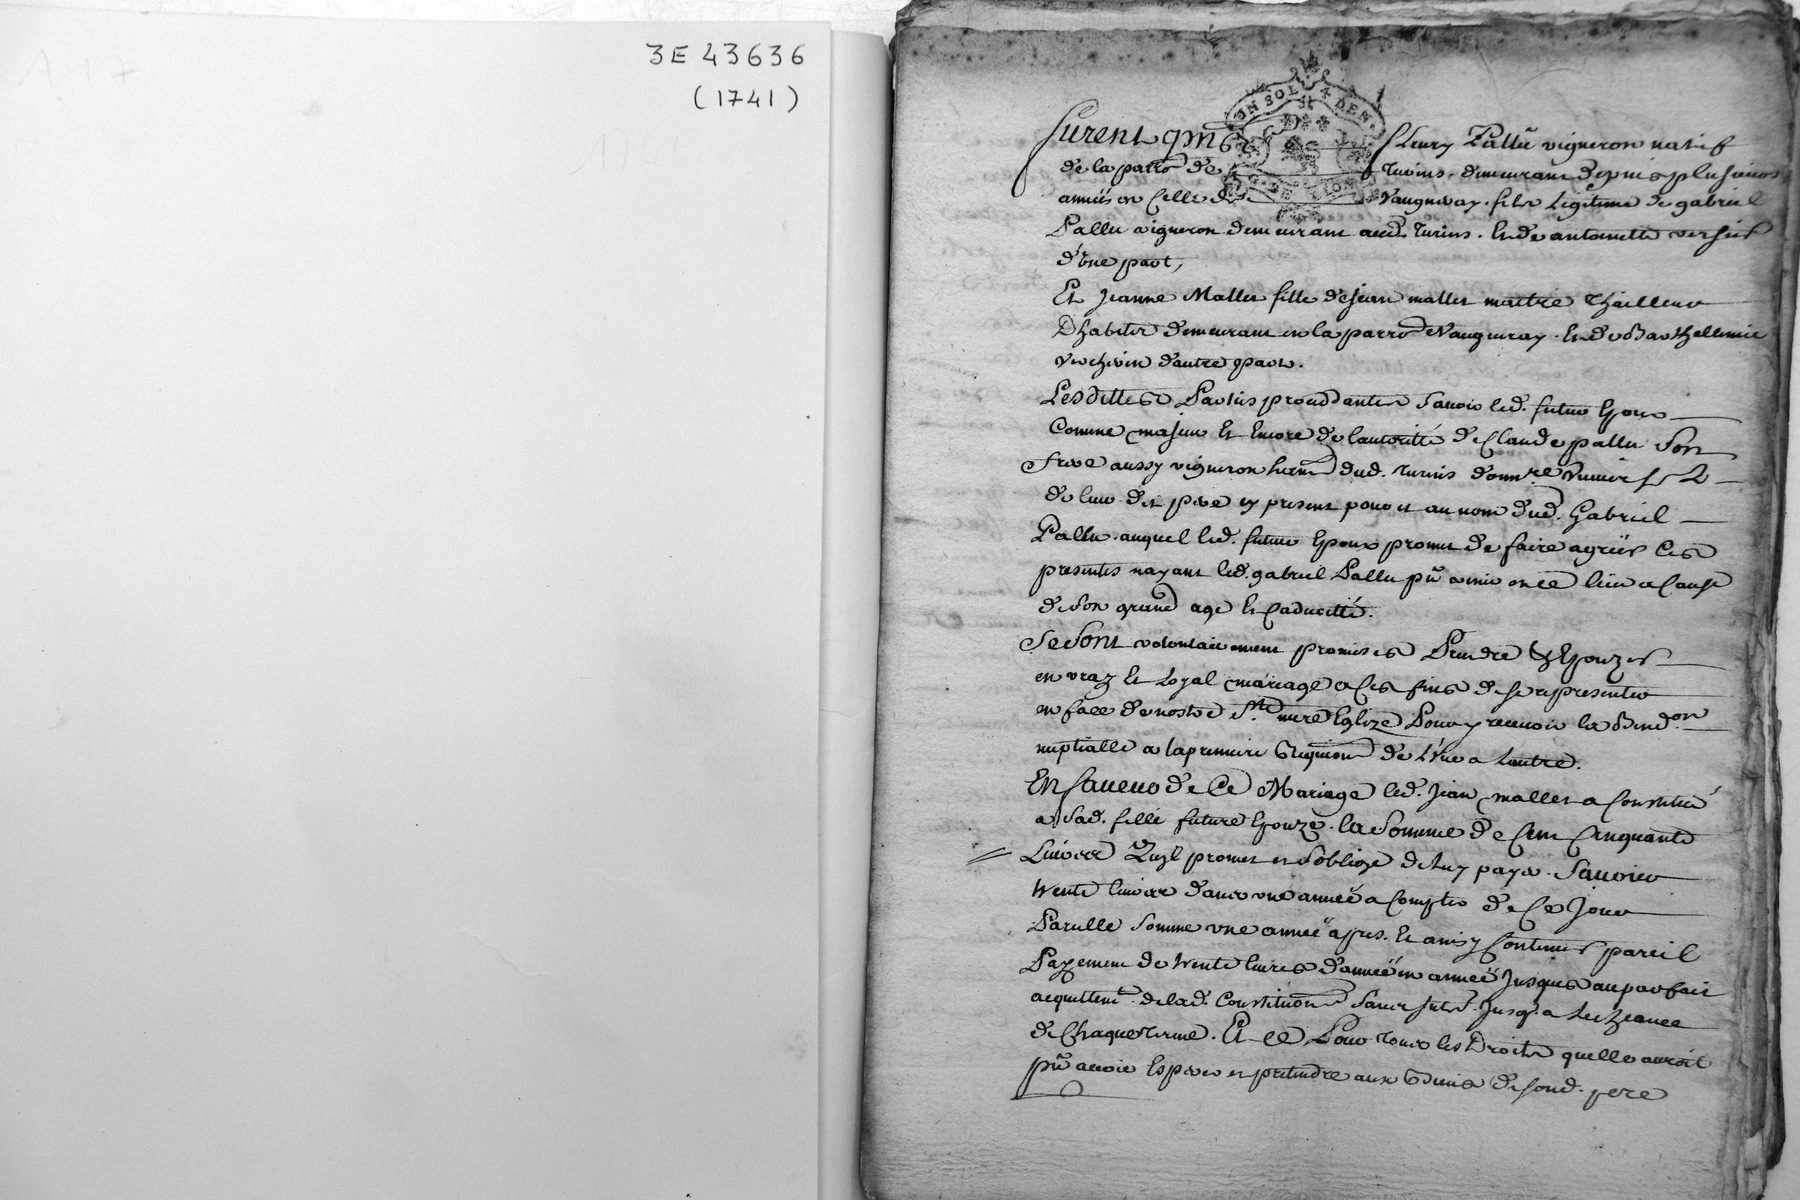 3E 43636
(1741)
UN SOL 4 DEN.
G. DE LYON
Furent pnts Fleury Pallu vigneron natif
de la parro de Turins demeurant depuis plusieurs
années en celle de Vaugneray fils legitime de gabriel
Pallu vigneron demeurant aud. Turins. Et de antoinette
d'Une part,
Et Jeanne Mallet fille de jean mallet maitre Thailleur
D'habits demeurant en la parro de Vaugneray. Et de Barthellemie
d'autre part.
Lesdittes Parties proceddantes Sauoir led. futur Epoux
Comme majeur Et Encore de l'autorité de Claude pallu Son
frere aussy vigneron dud. Turins
de leur dit pere icy present pour et au nom dud. Gabriel
Pallu auquel led. futur Epoux promet de faire agréer Ces
presentes nayant led. gabriel Pallu pû venir en ce lieu a Cause
de Son grand age Et Caducitté.
Se Sont volontairement promis es Prendre & Epouzer
en vray Et Loyal mariage a Ces fins de se representer
en face de nostre Ste mere Eglize Pour y receuoir la Bened.on
nuptialle a la premiere Requisition de L'Une a Lautre.
En faueur de Ce Mariage led. Jean mallet a Constitué
a Sad. fille future Epouze la Somme de Cent Cinquante
Liures Quil promet et S'oblige de Luy payer. Sauoir
trente liures dans une année a Compter de Ce Jour
Pareille Somme une année apres. Et ainsy Continuer pareil
Payement de trente liures d'année en année Jusques au parfait
acquittemt. de lad. Constitution Sans Interest Jusq. a Lecheance
de Chaque terme. Et ce Pour Tous les Droits quelle auroit
pû auoir Esperer et pretendre aux Biens de sond. pere